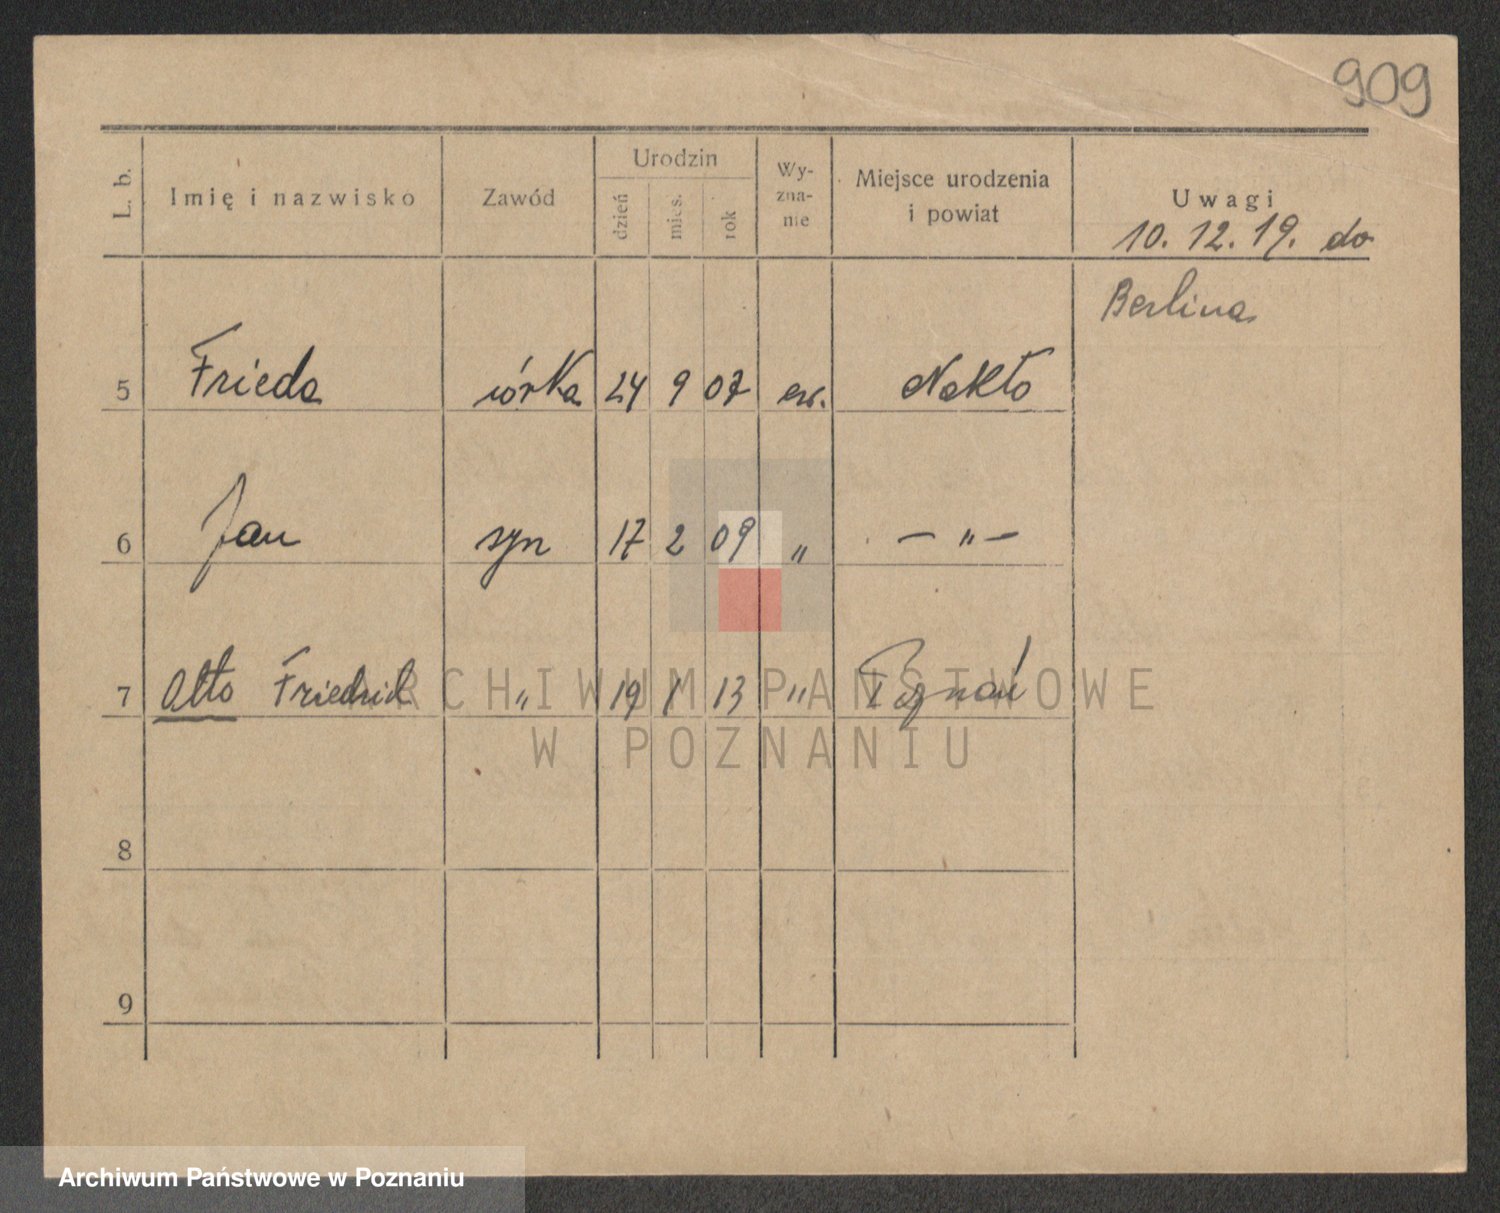 909
L. b. Imię i nazwisko Zawód Urodzin dzień mies. rok Wy-zna-nie Miejsce urodzenia i powiat Uwagi
10. 12. 19. do
Berlina
5 Frieda córka 24 9 07 ew. Nakło
6 Jan syn 17 2 09 „ — „ —
7 Otto Friedrich „ 19 1 13 „ Poznań
8
9
ARCHIWUM PAŃSTWOWE
W POZNANIU
Archiwum Państwowe w Poznaniu